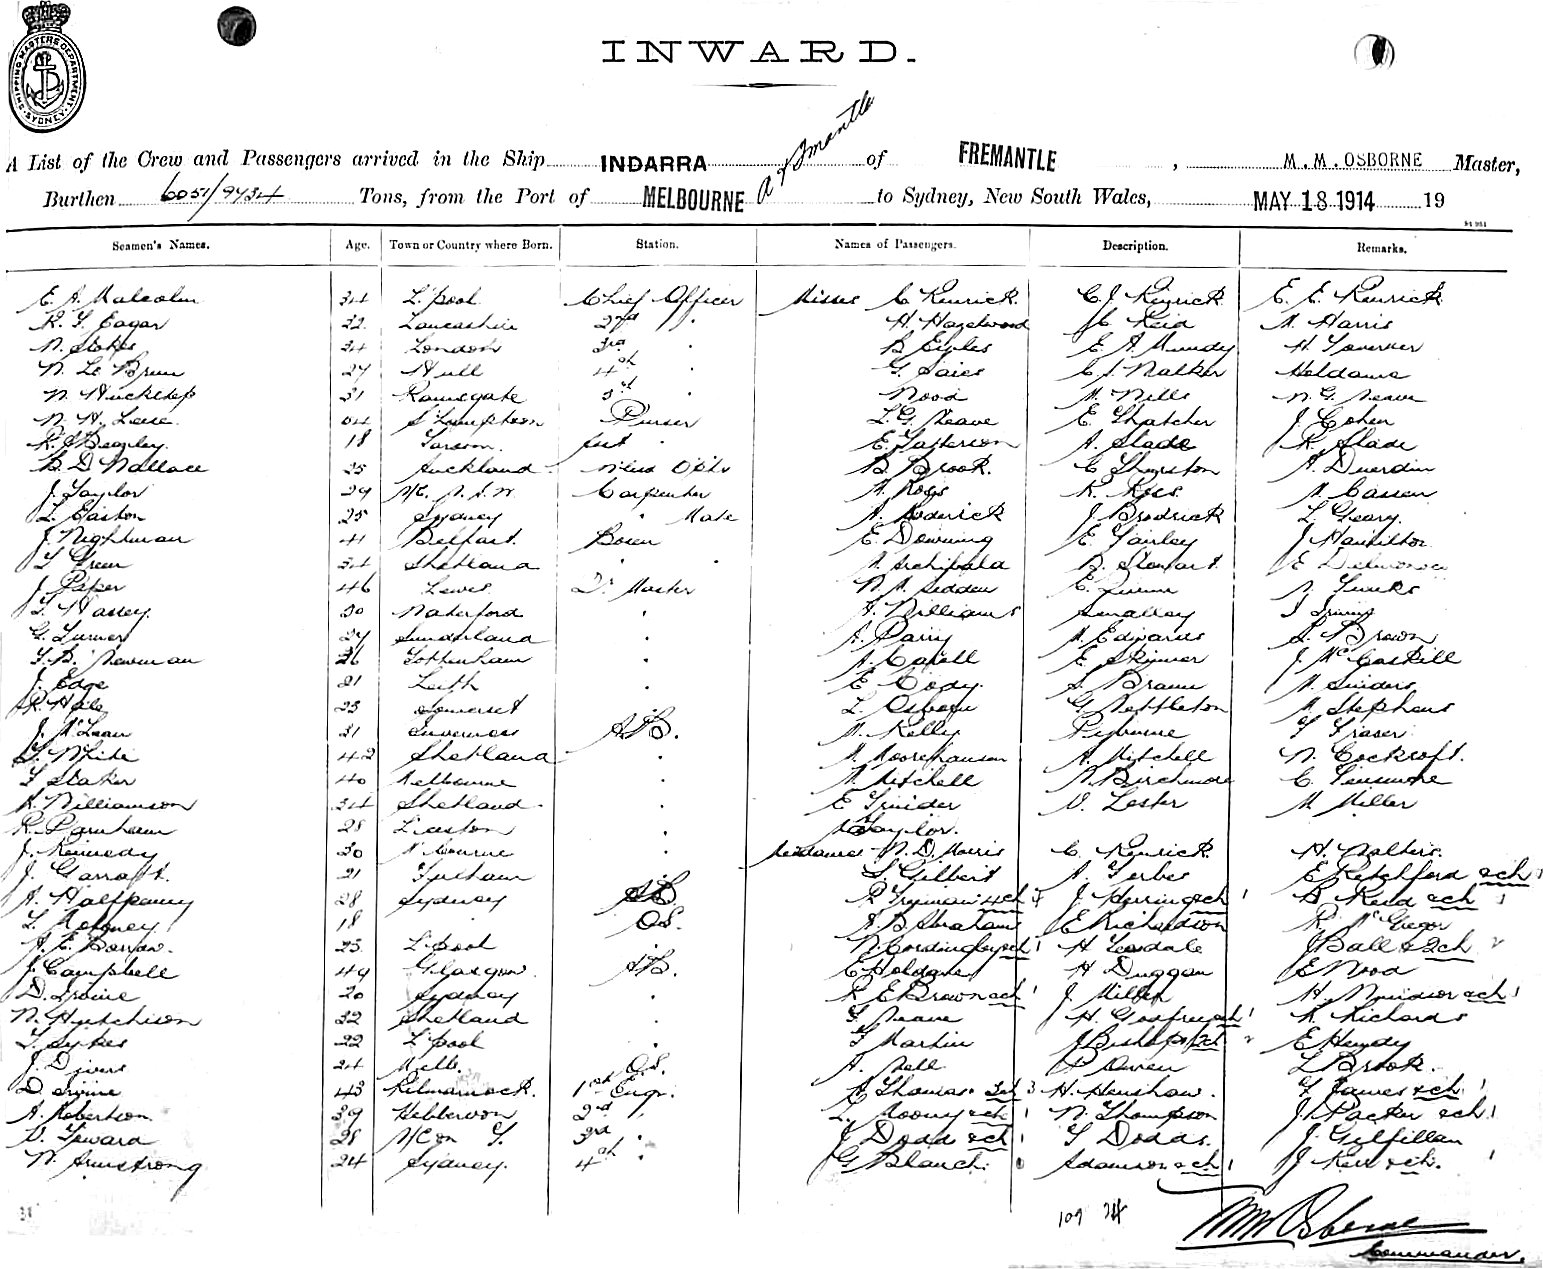 SHIPPING MASTERS DEPARTMENT SYDNEY
INWARD.
A List of the Crew and Passengers arrived in the Ship INDARRA of Fremantle of FREMANTLE, M. M. OSBORNE Master,
Burthen 6051/9734 Tons, from the Port of MELBOURNE to Sydney, New South Wales, MAY 18 1914 19
Seamen's Names. Age. Town or Country where Born. Station. Names of Passengers. Description. Remarks.
E. A. Malcolm 34 L'pool Chief Officer Misses C Kenrick C J Kenrick E. E. Kenrick
Eagar 22 Lancashire 2nd " H. Hazelwood Reid Harris
Stokes 24 London 3rd " B Eyles E A Mundy H Taverner
Le Brun 27 Hull 4th " G Saies C J Walker Haldane
W. Huckstep 31 Ramsgate 5th " Wood Mills W. G. Neave
W. H. Lease S'hampton Purser L. G. Neave E Thatcher J Cohen
Beazley 18 asst " E. Patterson A. Slade Slade
B. D Wallace 25 Auckland B Brook C Thurston A. Duerdin
J. Taylor 29 N/C. N.S.W. Carpenter Ross Ross
L. Easton 25 Sydney " Mate J Brodrick L Geary
J. Nightman 41 Belfast Bosun E Downing E Fairley Hamilton
Green 34 Shetland " Archibald Stewart
J. Paper 46 Lewes Master W. A. Seddon E. Quinn
Hassey 30 Waterford " Williams Smalley
G. Turner 37 Sunderland " A. Parry Edwards Brown
B. Newman 26 Tottenham " Skinner J McCaskill
J. Edge 21 Leith " E Cody Braun
R. Hole 23 Somerset " L Osborn G Nettleton Stephens
J. McLean 31 Inverness A.B. M. Kelly Fraser
White 42 Shetland " A. Mitchell W. Cockroft
Staker 40 Melbourne " Mitchell Birchmore
Williamson 34 Shetland " E Trinder V. Lester M Miller
R. Parnham 28 " Taylor.
J. Kennedy 30 M'bourne " Mesdames W. D. Morris C. Kenrick H. Walters
J. Garratt 21 " S. Gilbert A. Forbes E Retchford & ch 1
A. Halfpenny 28 Sydney A.B. 4 ch 4 J Herring & ch 1 B Reid & ch 1
18 " O.S. A. B. Abraham E Richardson R. McGregor
A. E. Borrow 23 L'pool " W Cordingley & ch 1 H Teasdale J Ball & 2 ch 2
J. Campbell 49 Glasgow A.B. E Holdane H Duggan E Wood
D. Irvine 20 Sydney " R E Brown & ch 1 J Miller H. Windsor & ch 1
W. Hutchison 32 Shetland " Neave H. Godfrey & ch 1 R Richards
Sykes 22 L'pool " Martin J Bishop & 2 ch 2 E Hendy
J. Divers 24 Melb. O.S. A. Nell Owen L Brook
D Irvine 43 Kilmarnock 1st Engr. A Thomas 3 ch 3 H. Henshaw James & ch 1
A. Robertson 39 Hebburn 2nd " L. Mooney & ch 1 W. Thompson J Packer & ch 1
Seward 28 N/C on T. 3rd " J Dodd & ch 1 Dodds. J. Gilfillan
W. Armstrong 24 Sydney 4th " G Blanch Adamson & ch 1 J Kerr & ch 1
109 24
M M Osborne
Commander.